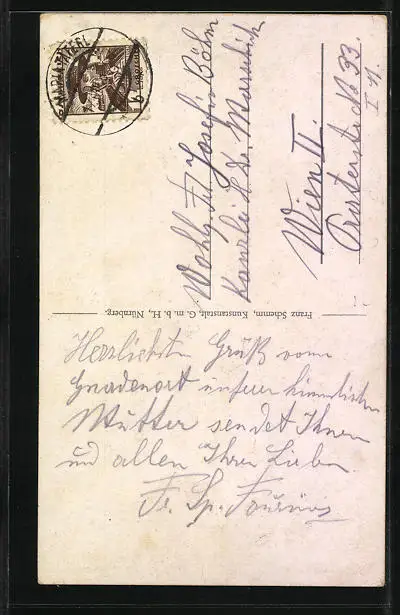 MARIA TAFERL
Wohlg. Frl. Josefin Böhm
Kanzlei Dr.
Wien II.
Praterstraße 33.
I 4.
Franz Schemm, Kunstanstalt, G. m. b. H., Nürnberg.
Herzlichste Grüße vom
Gnadenort unserer himmlischen
Mutter sendet Ihnen
und allen Ihren Lieben
Fr. Sp.